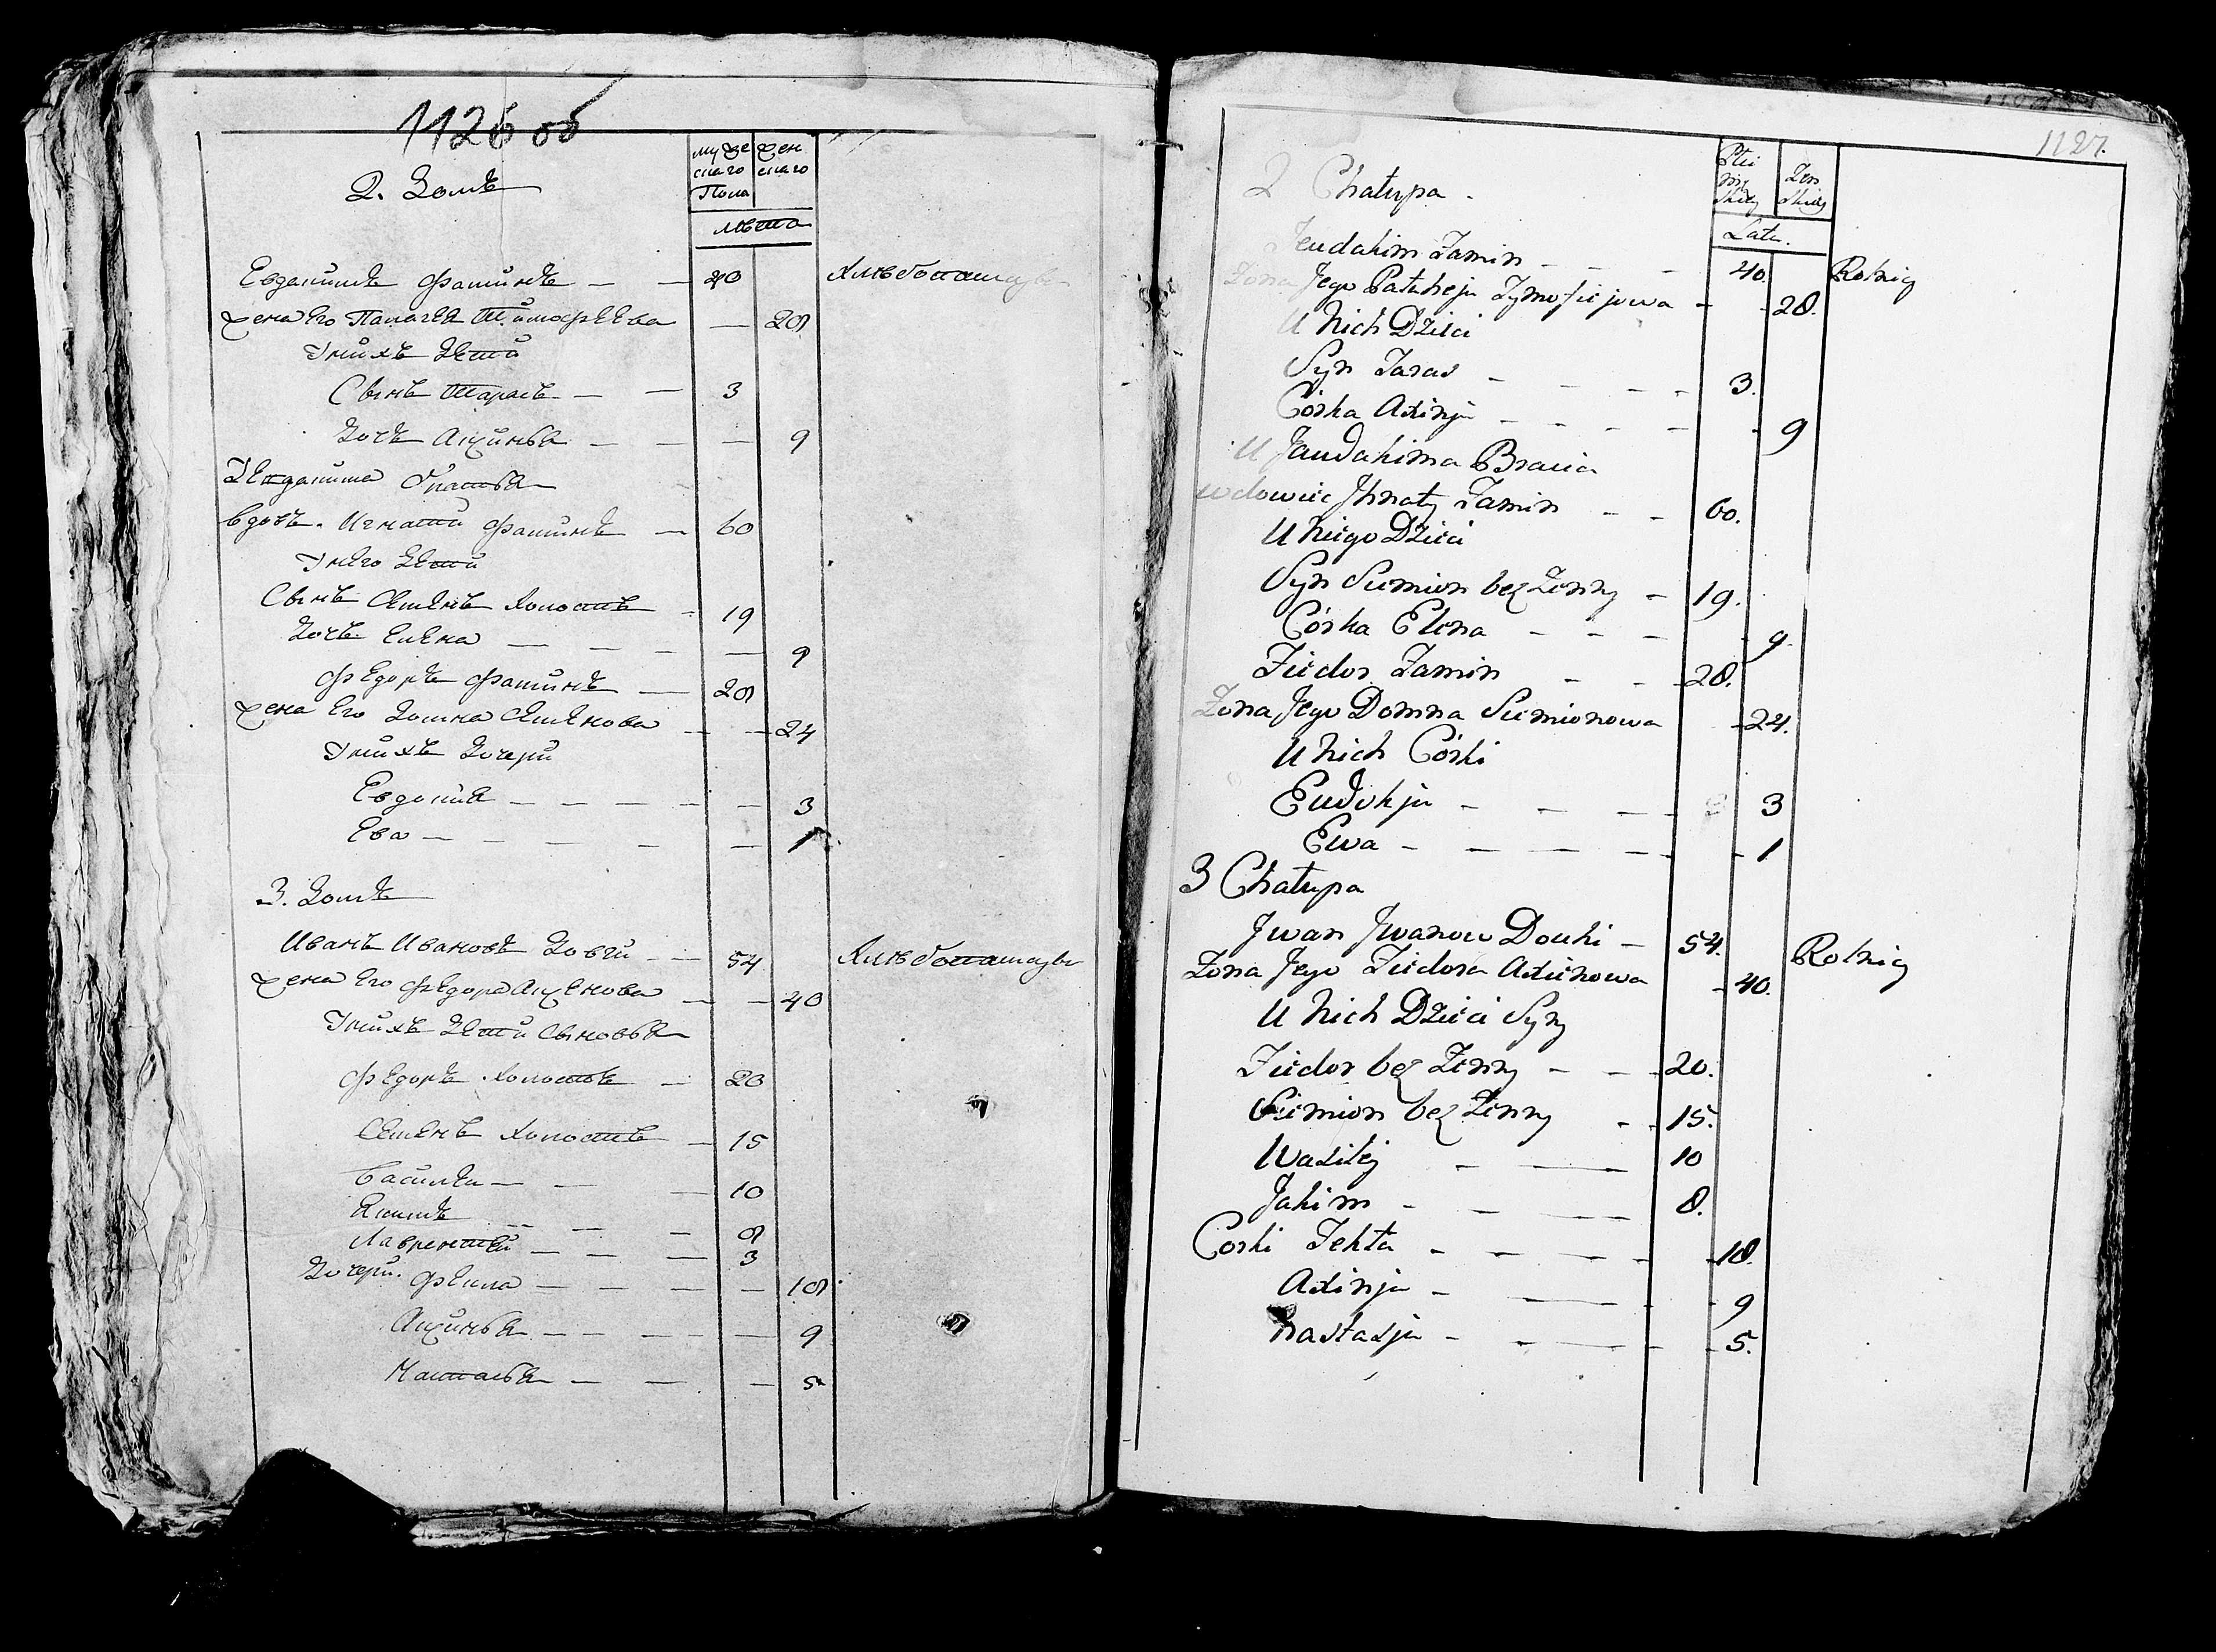 1126 об
2. Домъ
мужескаго женскаго
Пола
лѣта
Евдакимъ Фаминъ — — 40 Хлѣбопашецъ
жена Его Палагея Тимофеева — 28
У нихъ Дети
Сынъ Тарасъ — — 3
Дочь Аксинья — — — 9
У Евдакима братья
вдовъ. Игнатий Фаминъ — 60
У него Дети
Сынъ Семенъ холостъ - 19
Дочь Елена — — — — 9
Федоръ Фаминъ — 28
жена Его Домна Семенова — — 24
У нихъ Дочери
Евдокия — — — — — 3
Ева — — — — — 1
3. Домъ
Иванъ Ивановъ Довги — — 54 Хлѣбопашецъ
жена Его Федора Аксенова — — 40
У нихъ Дети Сыновья
Федоръ холостъ — 20
Семенъ холостъ — 15
Василеи — — — 10
Якимъ — — — 8
Лаврентей — — — 3
Дочери. Фекла — — — — 18
Аксинья — — — — — 9
Настасья — — — 5
1127.
2 Chałupa -
Płci Męskiey Żenskiey
Lata.
Jeudakim Famin - - - 40. Rolnig
Żona Jego Pałaheja Tymofiejowa - - 28.
U Nich Dzieci
Syn Taras - - - - - 3.
Córka Axinja - - - - - - 9
U Jaudakima Bracia
wdowiec Jhnaty Famin - - 60.
U Niego Dzieci
Syn Siemion bez Żonny - 19.
Córka Elena - - - - 9.
Fiedor Famin - - - 28.
Żona Jego Domna Siemionowa - 24.
U Nich Córki
Eudokja - - - - - 3
Ewa - - - - - - - 1
3 Chałupa
Jwan Jwanow Douhi - 54. Rolnig
Żona Jego Fiedora Axienowa - 40.
U Nich Dzieci Syny
Fiedor bez Żonny - - - 20.
Siemion bez Żonny - - 15.
Wasilej - — 10
Jakim - - — 8.
Corki Fekła - - — - - 18.
Axinja - — - - 9
Nastasja - - — - - 5.